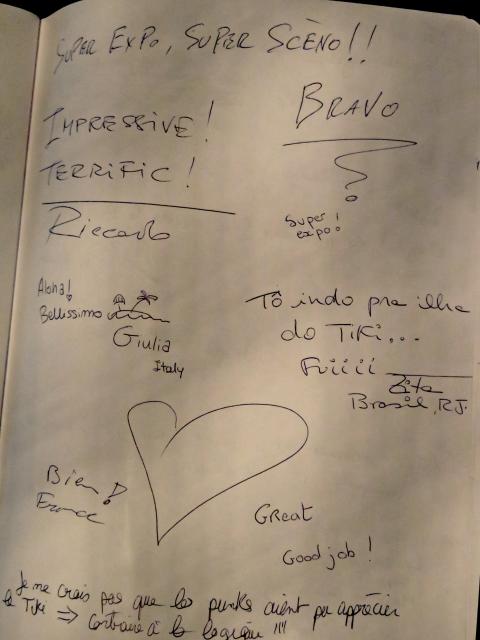 SUPER EXPO, SUPER SCÈNO!!
IMPRESSIVE!
TERRIFIC!
Riccardo
BRAVO
Super
expo!
Aloha!
Bellissimo
Giulia
Italy
Tô indo pra ilha
do TIKI...
Fuiiii
Zita
Brasil, RJ.
Bien!
France
GReat
Good job!
Je ne crois pas que les punks aient pu apprécier
le Tiki ⇒ contraire à la logique !!!